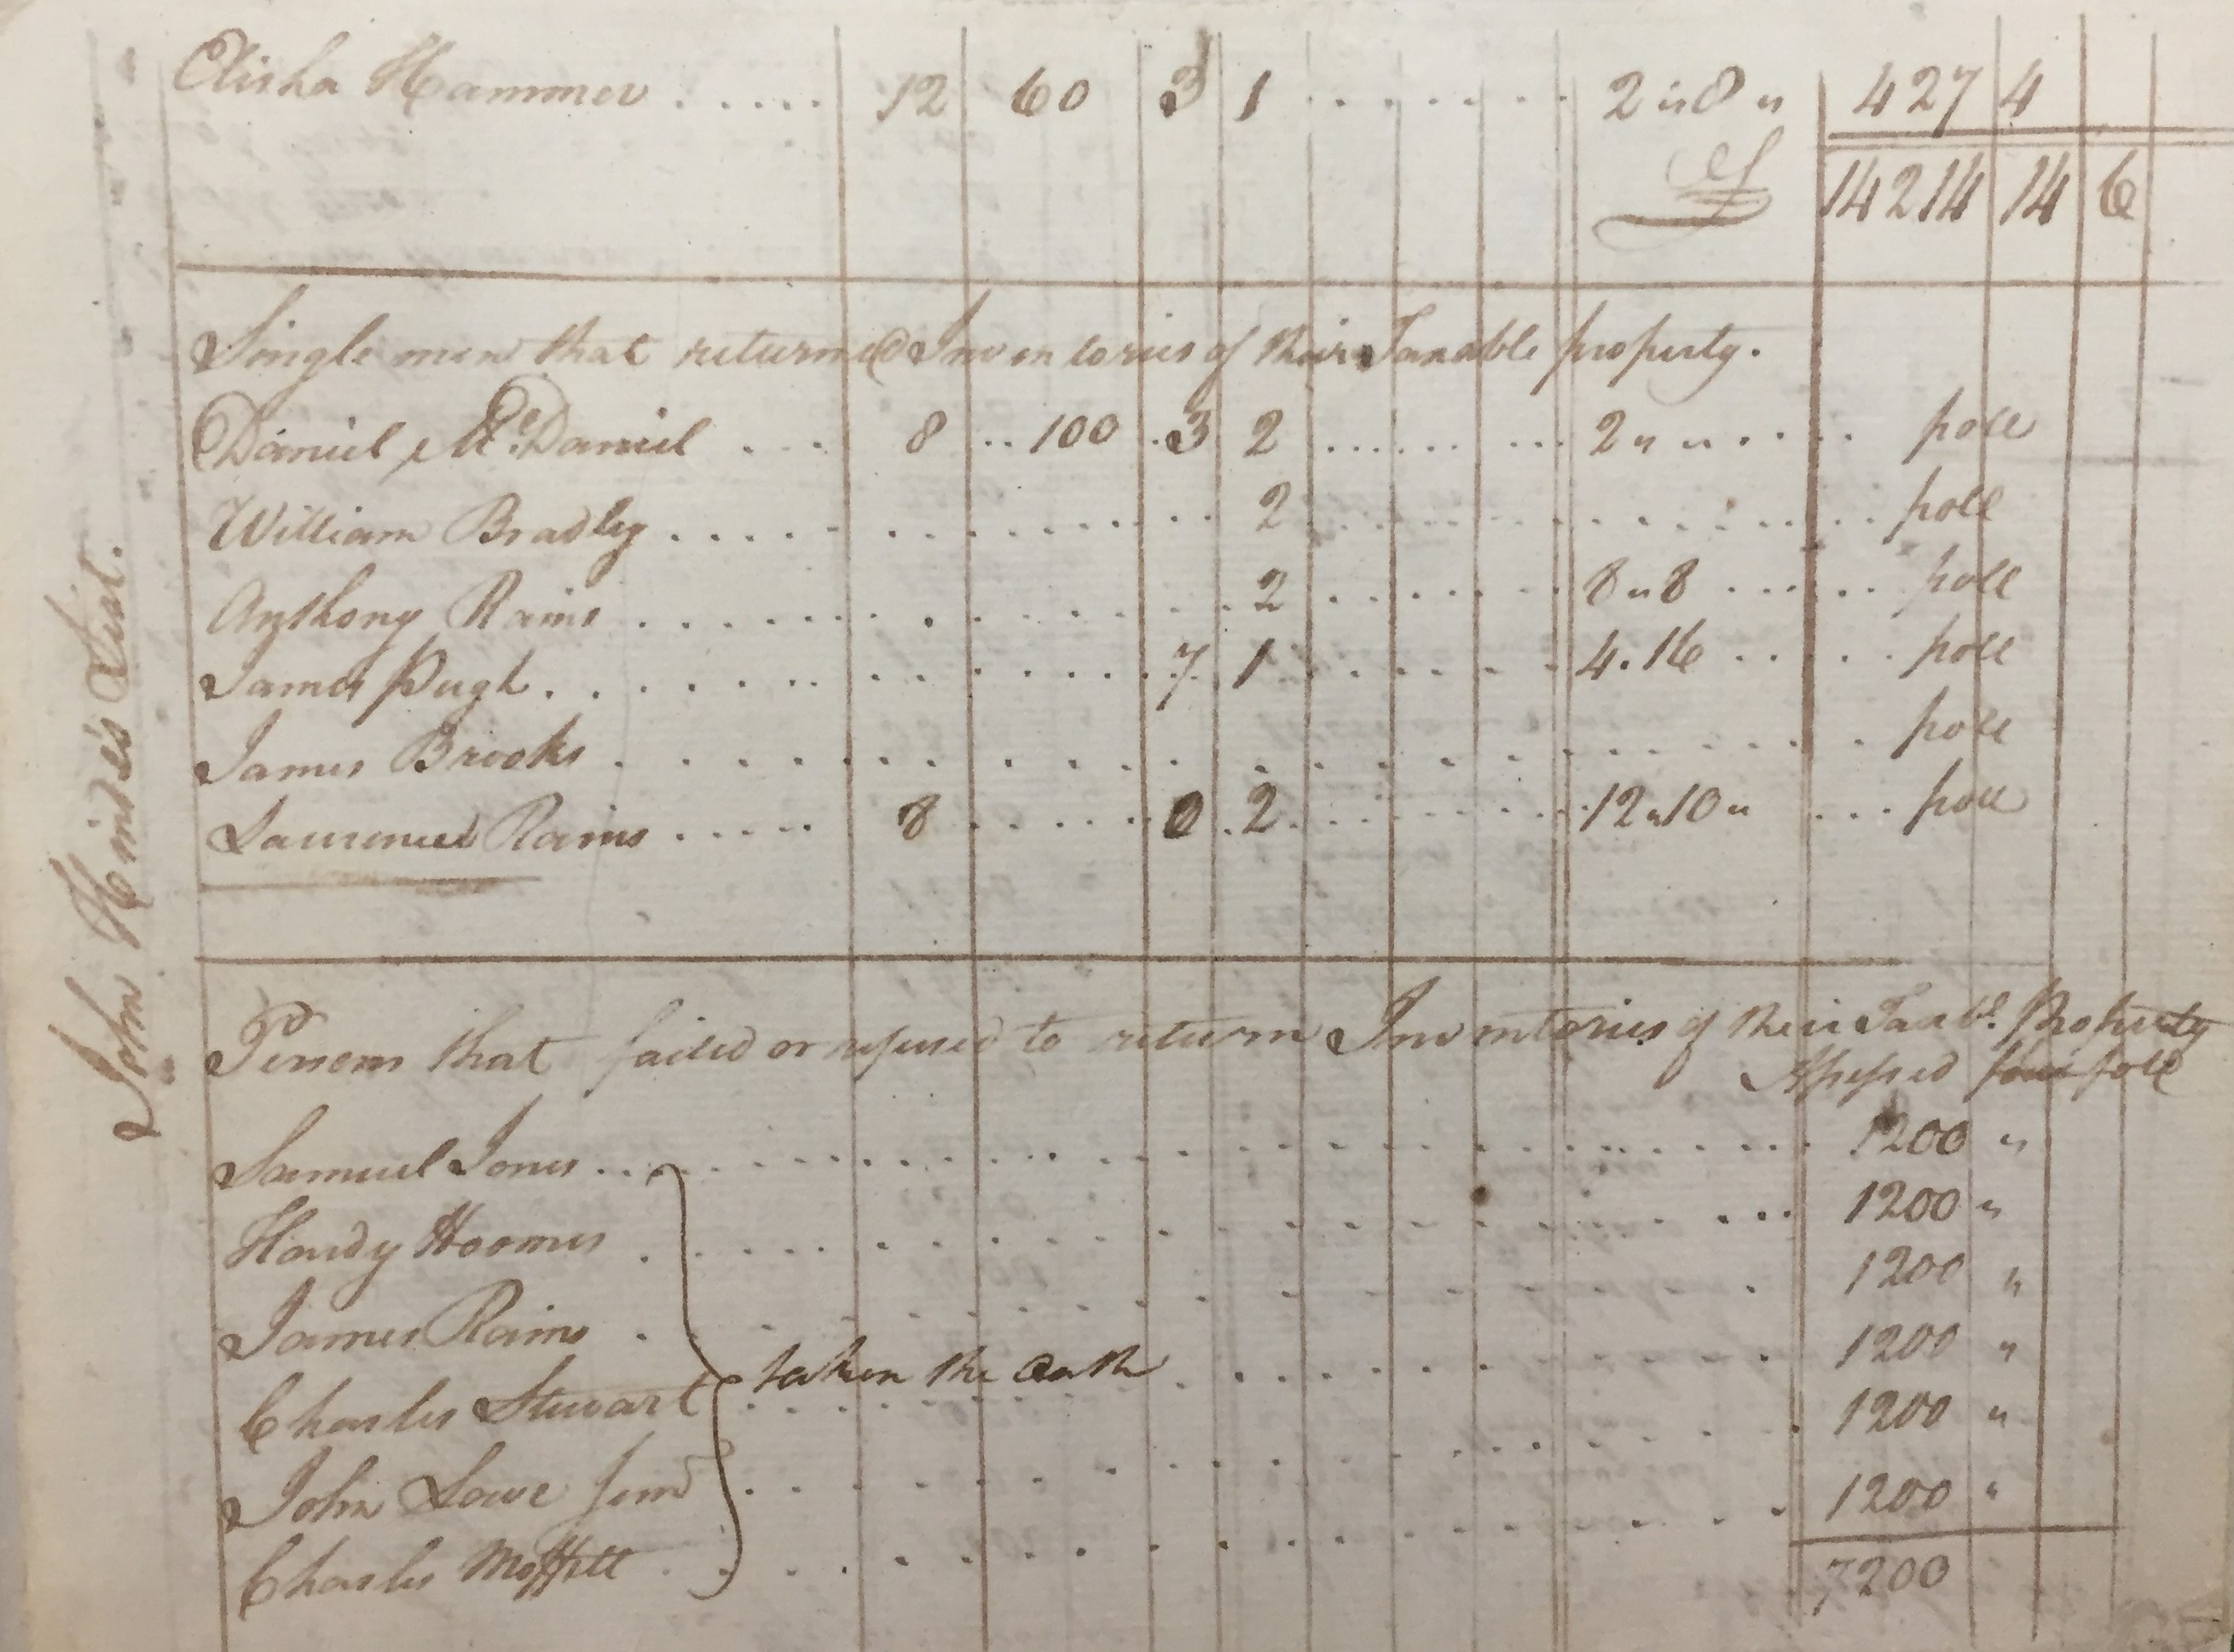 Elisha Hammer ..... 12 60 3 1 ........ 2 " 8 " 427 4
£ 14214 14 6
Single men that returned Inventories of their Taxable property.
Daniel McDaniel ... 8 .. 100 . 3 2 ......... 2 " " ..... poll
William Bradley ............. 2 ............... poll
Anthony Rains ............ 2 ....... 8 " 8 ...... poll
James Pugh ............ 7 1 ...... 4 . 16 ..... poll
James Brooks ..................... poll
Laurence Rains ..... 8 ...... 0 . 2 ........ 12 " 10 " ... poll
John Hinds's Dist.
Persons that failed or refused to return Inventories of their Taxbl. Property
Assessed four fold
Samuel Jones ..................... 1200 "
Handy Hoomes ..................... 1200 "
James Rains ..................... 1200 "
Charles Stewart taken the Oath ........ 1200 "
John Lowe senr ..................... 1200 "
Charles Moffitt ..................... 1200 "
7200